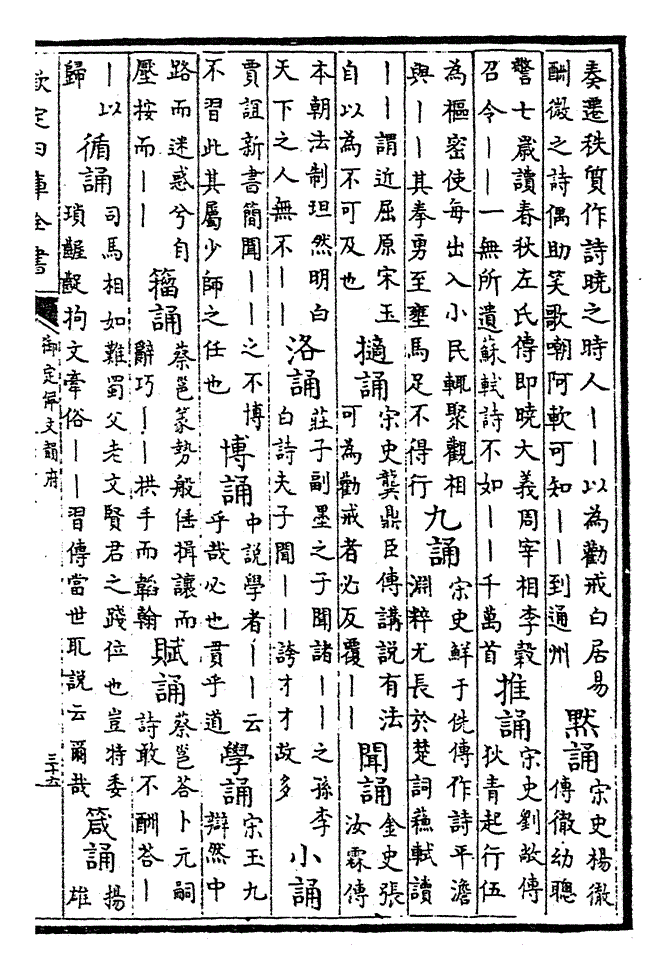 奏遷秩質作詩曉之時人丨丨以為勸戒白居易
酬微之詩偶助笑歌嘲阿軟可知丨丨到通州
默誦
宋史楊徹
傳徹幼聰
警七歲讀春秋左氏傳即曉大義周宰相李穀
召令丨丨一無所遺蘇軾詩不如丨丨千萬首
推誦
宋史劉敞傳
狄青起行伍
為樞密使每出入小民輒聚觀相
與丨丨其拳勇至壅馬足不得行
九誦
宋史鮮于侁傳作詩平澹
淵粹尤長於楚詞蘇軾讀
丨丨謂近屈原宋玉
自以為不可及也
擿誦
宋史龔鼎臣傳講説有法
可為勸戒者必反覆丨丨
聞誦
金史張
汝霖傳
本朝法制坦然明白
天下之人無不丨丨
洛誦
莊子副墨之子聞諸丨丨之孫李
白詩夫子聞丨丨誇才才故多
小誦
賈誼新書簡聞丨丨之不博
不習此其屬少師之任也
博誦
中説學者丨丨云
乎哉必也貫乎道
學誦
宋玉九
辯然中
路而迷惑兮自
壓按而丨丨
籀誦
蔡邕篆勢般倕揖讓而
辭巧丨丨拱手而韜翰
賦誦
蔡邕答卜元嗣
詩敢不酬答丨
丨以
歸
循誦
司馬相如難蜀父老文賢君之踐位也豈特委
瑣齷齪拘文牽俗丨丨習傳當世取説云爾哉
箴誦
揚
雄
欽定四庫全書
御定佩文韻府
三十六